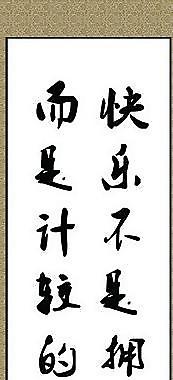 快乐不是拥
而是计较的